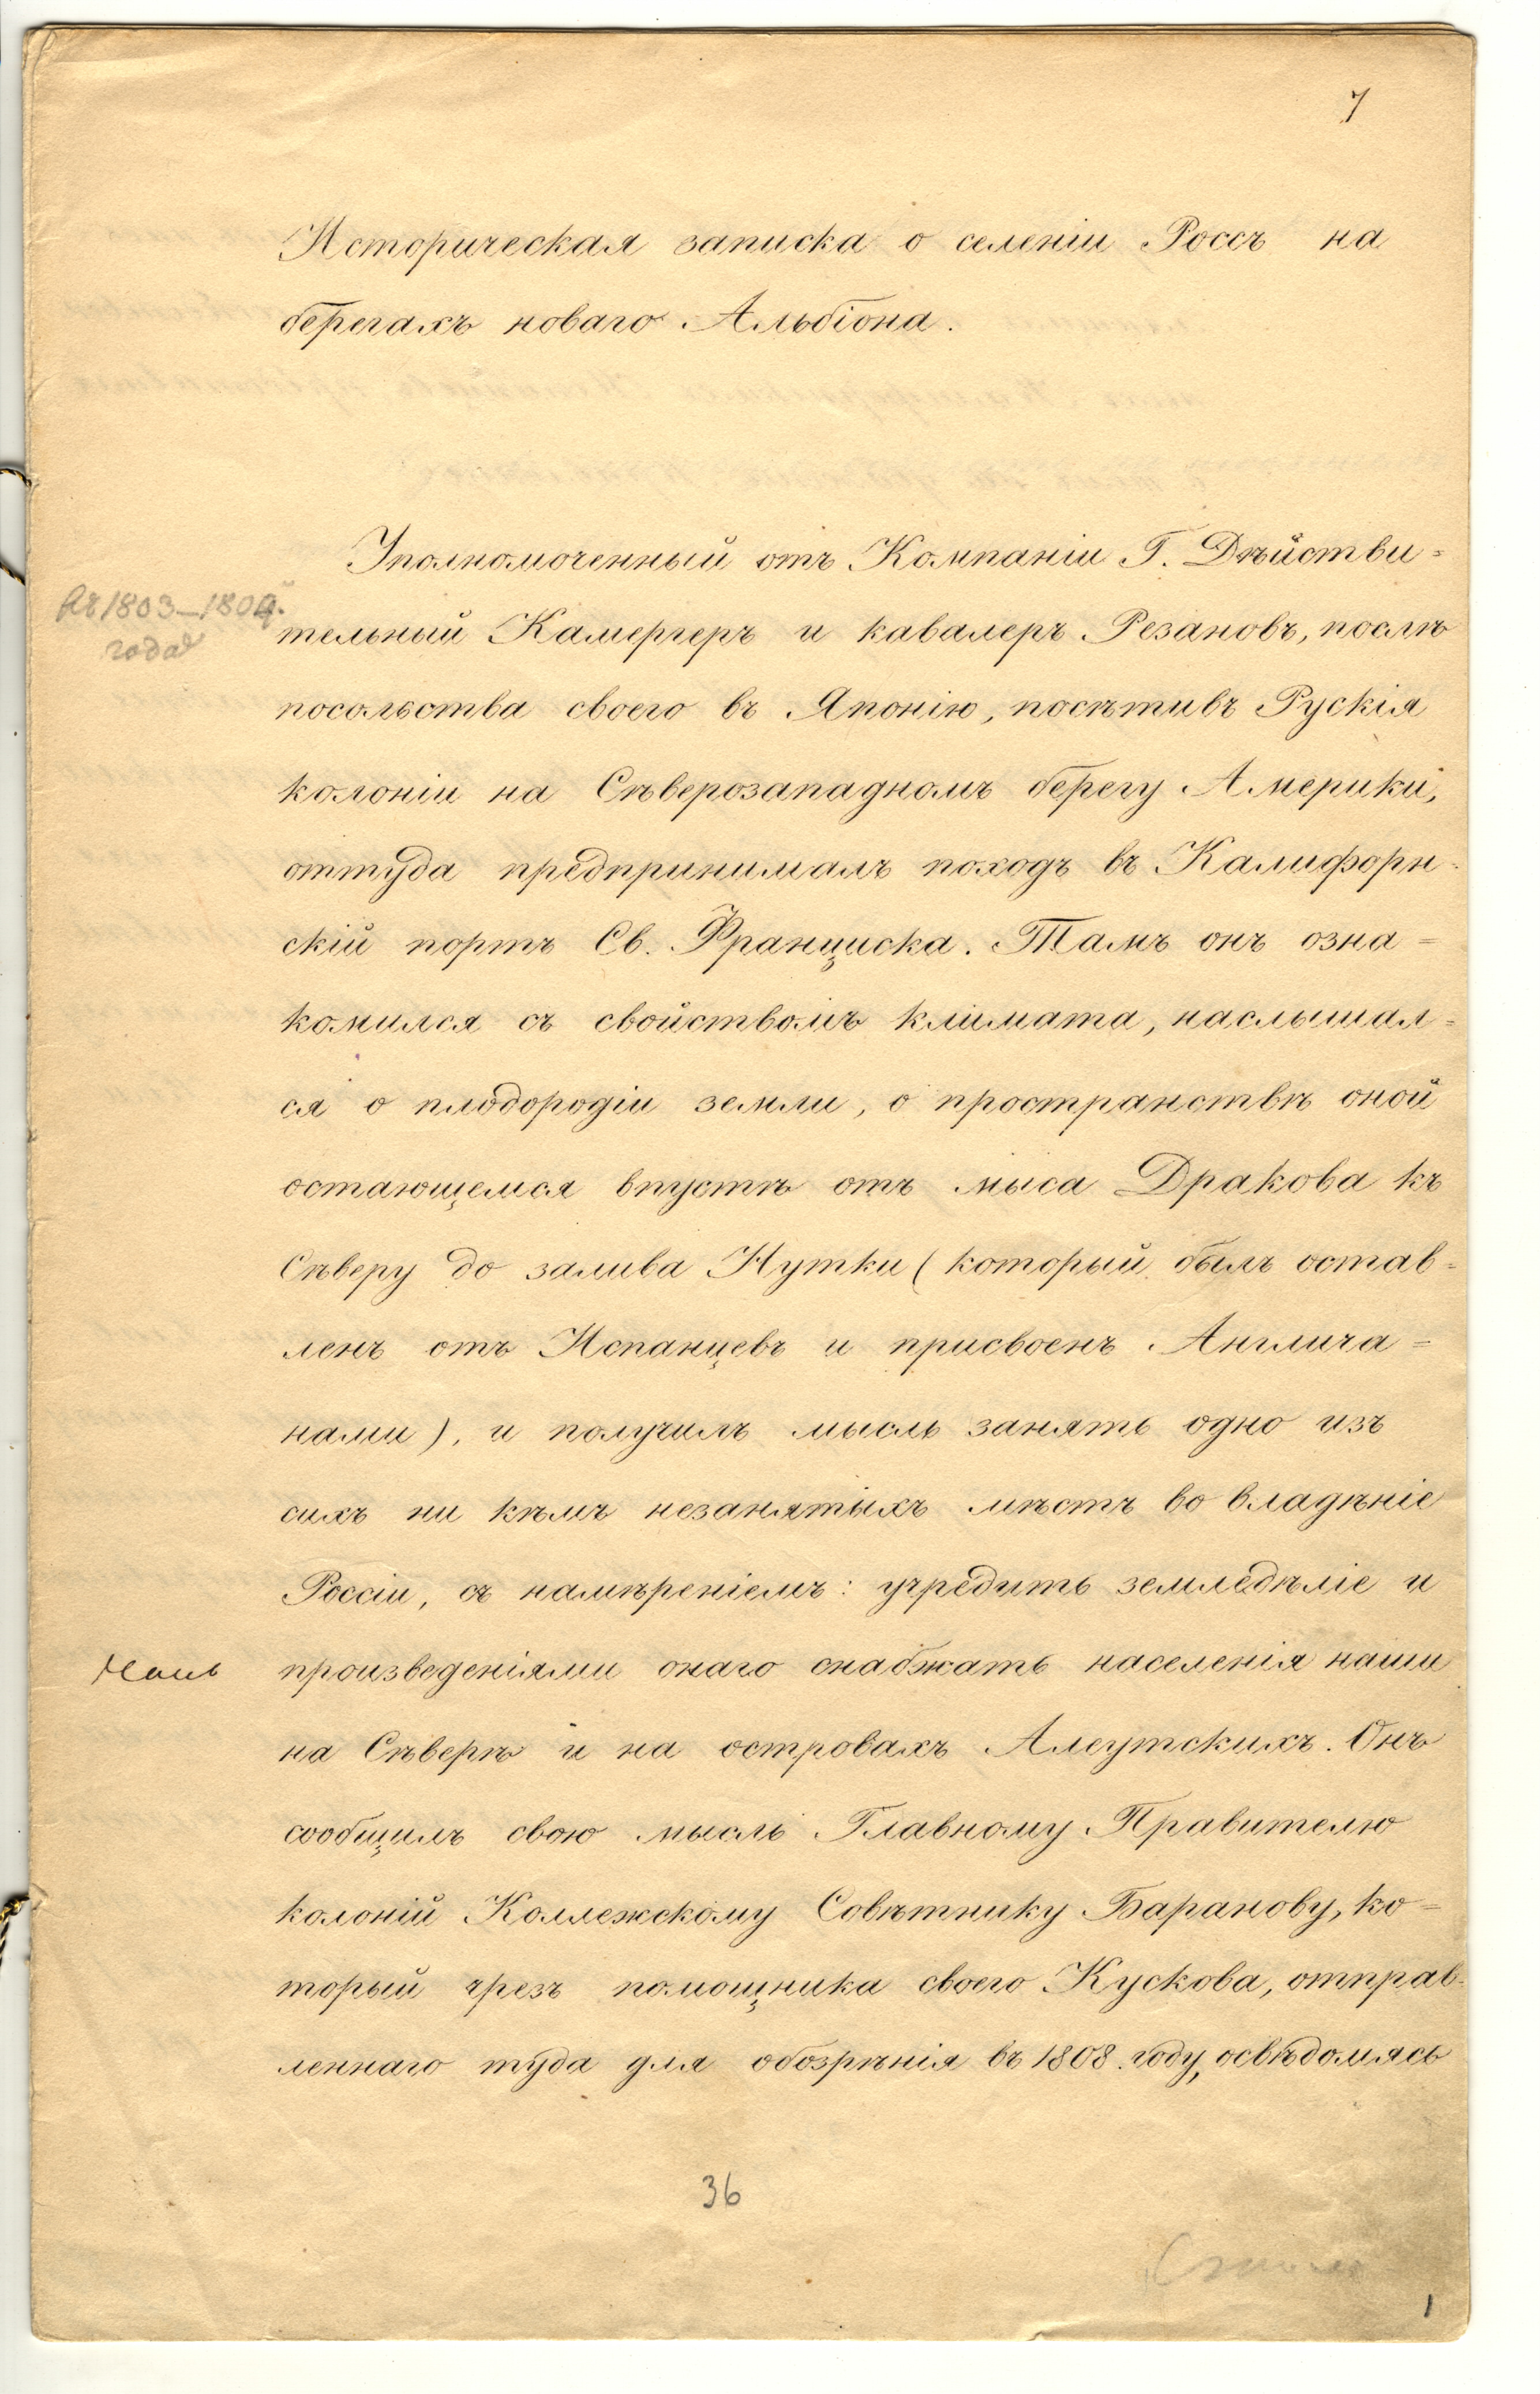 7
Историческая записка о селеніи Россъ на
берегахъ новаго Альбіона.
Уполномоченный отъ Компаніи Г. Дѣйстви=
въ 1803–1804.
тельный Камергеръ и кавалеръ Резановъ, послѣ
годах
посольства своего въ Японію, посѣтивъ Рускія
колоніи на Сѣверозападномъ берегу Америки,
оттуда предпринималъ походъ въ Калифорн-
скій портъ Св. Франциска. Тамъ онъ озна=
комился съ свойствомъ климата, наслышал=
ся о плодородіи земли, о пространствѣ оной
остающемся впустѣ отъ мыса Дракова къ
Сѣверу до залива Нутки (который былъ остав=
ленъ отъ Испанцевъ и присвоенъ Англича=
нами), и получилъ мысль занять одно изъ
сихъ ни кѣмъ незанятыхъ мѣстъ во владѣніе
Россіи, съ намѣреніемъ: учредить земледѣліе и
произведеніями онаго снабжать населенія наши
на Сѣверѣ и на островахъ Алеутскихъ. Онъ
сообщилъ свою мысль Главному Правителю
колоній Коллежскому Совѣтнику Баранову, ко=
торый чрезъ помощника своего Кускова, отправ-
леннаго туда для обозрѣнія въ 1808. году, освѣдомясь
36
1